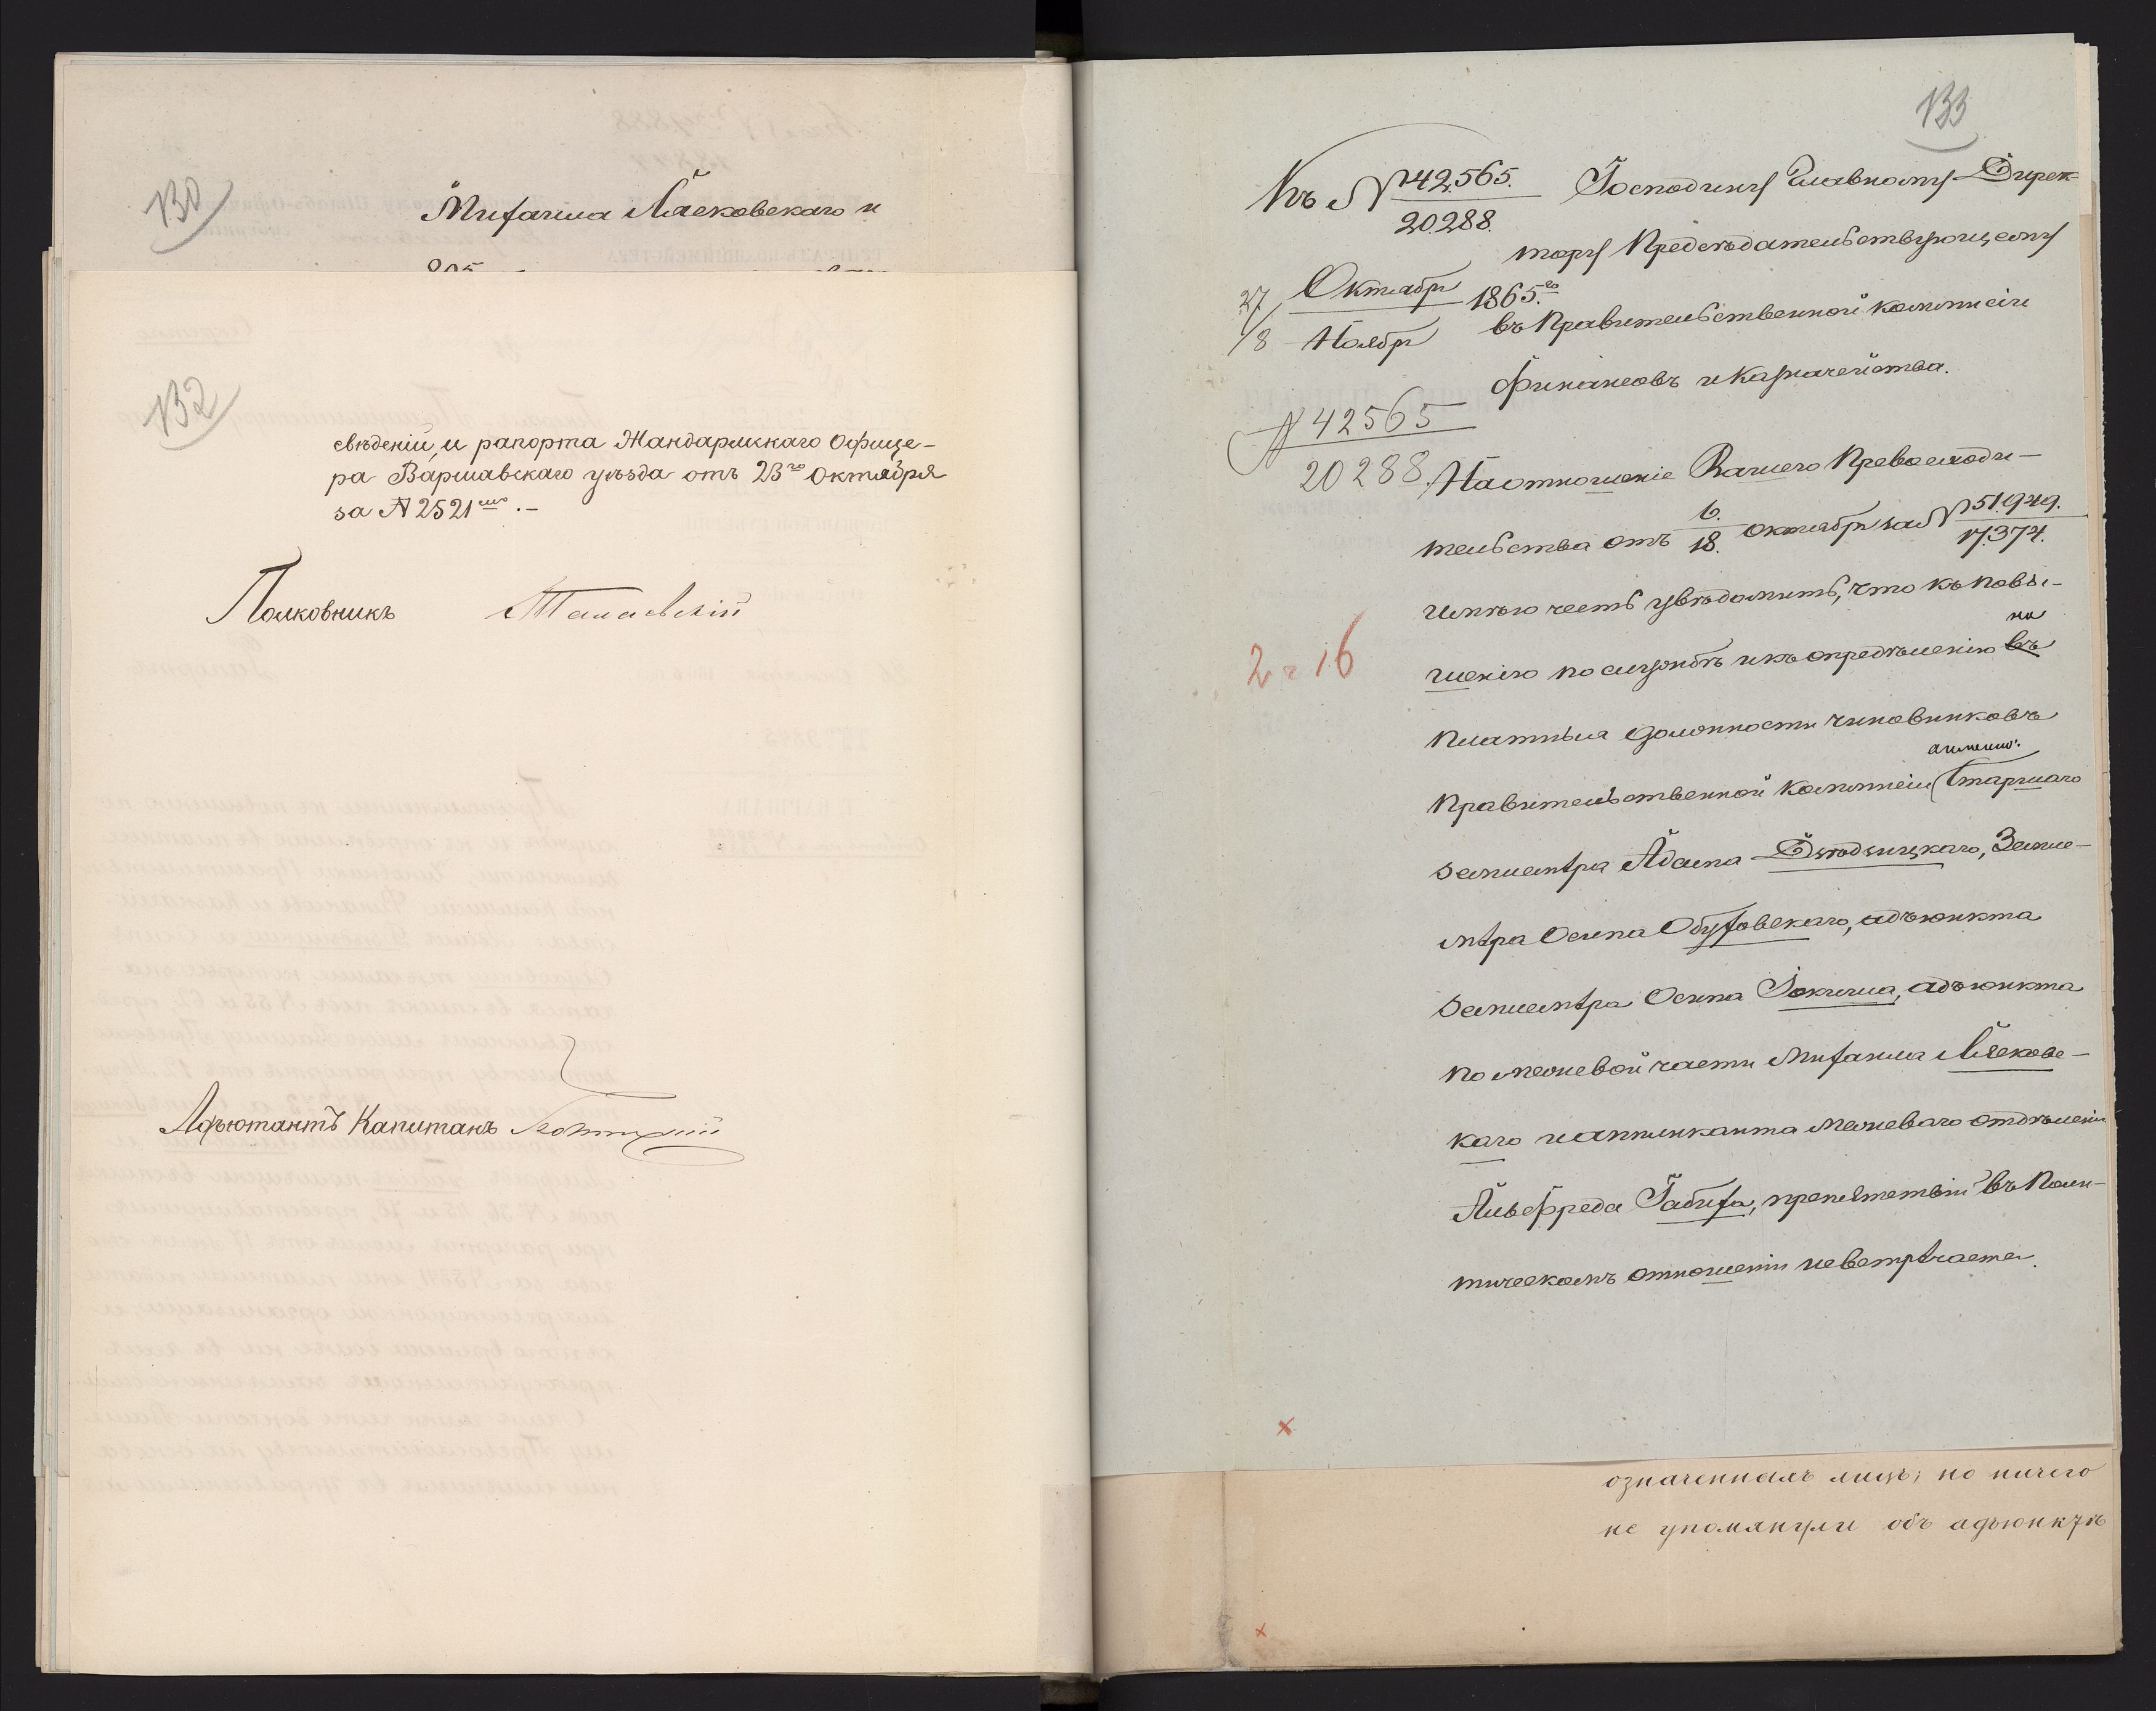 130
Михаила Лясковскаго и
132
свѣденій, и рапорта Жандармскаго Офице-
ра Варшавскаго уѣзда отъ 23го Октября
за № 2521мъ.-
Полковникъ
Адъютантъ Капитанъ
133
Къ № 42,565.
20,288.
Господину Главному Дирек-
тору Предсѣдательствующему
27 Октября 1865го
/8 Ноября
въ Правительственной Коммисіи
Финансовъ и Казначейства.
№ 42565
20288
На отношеніе Вашего Превосходи-
тельства отъ 6./18. Октября за № 51,949./17,374.
имѣю честь увѣдомить, что къ повы-
шенію по службѣ и къ опредѣленію въ
на
2 г 16
платныя должности чиновниковъ
а именно:
Правительственной Коммисіи Старшаго
Землемѣра Адама Дзѣдзицкаго, Земле-
мѣра Осипа Обуховскаго, адъюнкта
Землемѣра Осипа адъюнкта
по межевой части Михаила Лясковс-
каго и аппликанта межеваго отдѣленія
Альфреда Габиха, препятствій въ Поли-
тическомъ отношеніи не встрѣчается.
означенныхъ лицъ; но ничего
не упомянули объ адъюнктѣ